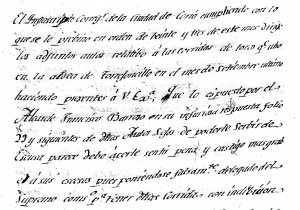 El Ynfraescripto Correg.r de la Ciudad de Coria cumpliendo con lo
que se le previno en orden de veinte y tres de este mes dirige
los adjuntos autos relatibo a las corridas de toros q.e ubo
en la Aldea de Torrejoncillo en el mes de Setiembre ultimo
haciendo presente a V.E. Que lo expuesto por el
Alcalde Francisco en su respuesta folio
22 y siguientes de dhos Autos de poderle serbir de
parece debe acerle sentir pena y castigo
a sus excesos pues poniendose falsam.te abrigado del
Supremo como p.a tener dhas Corridas con